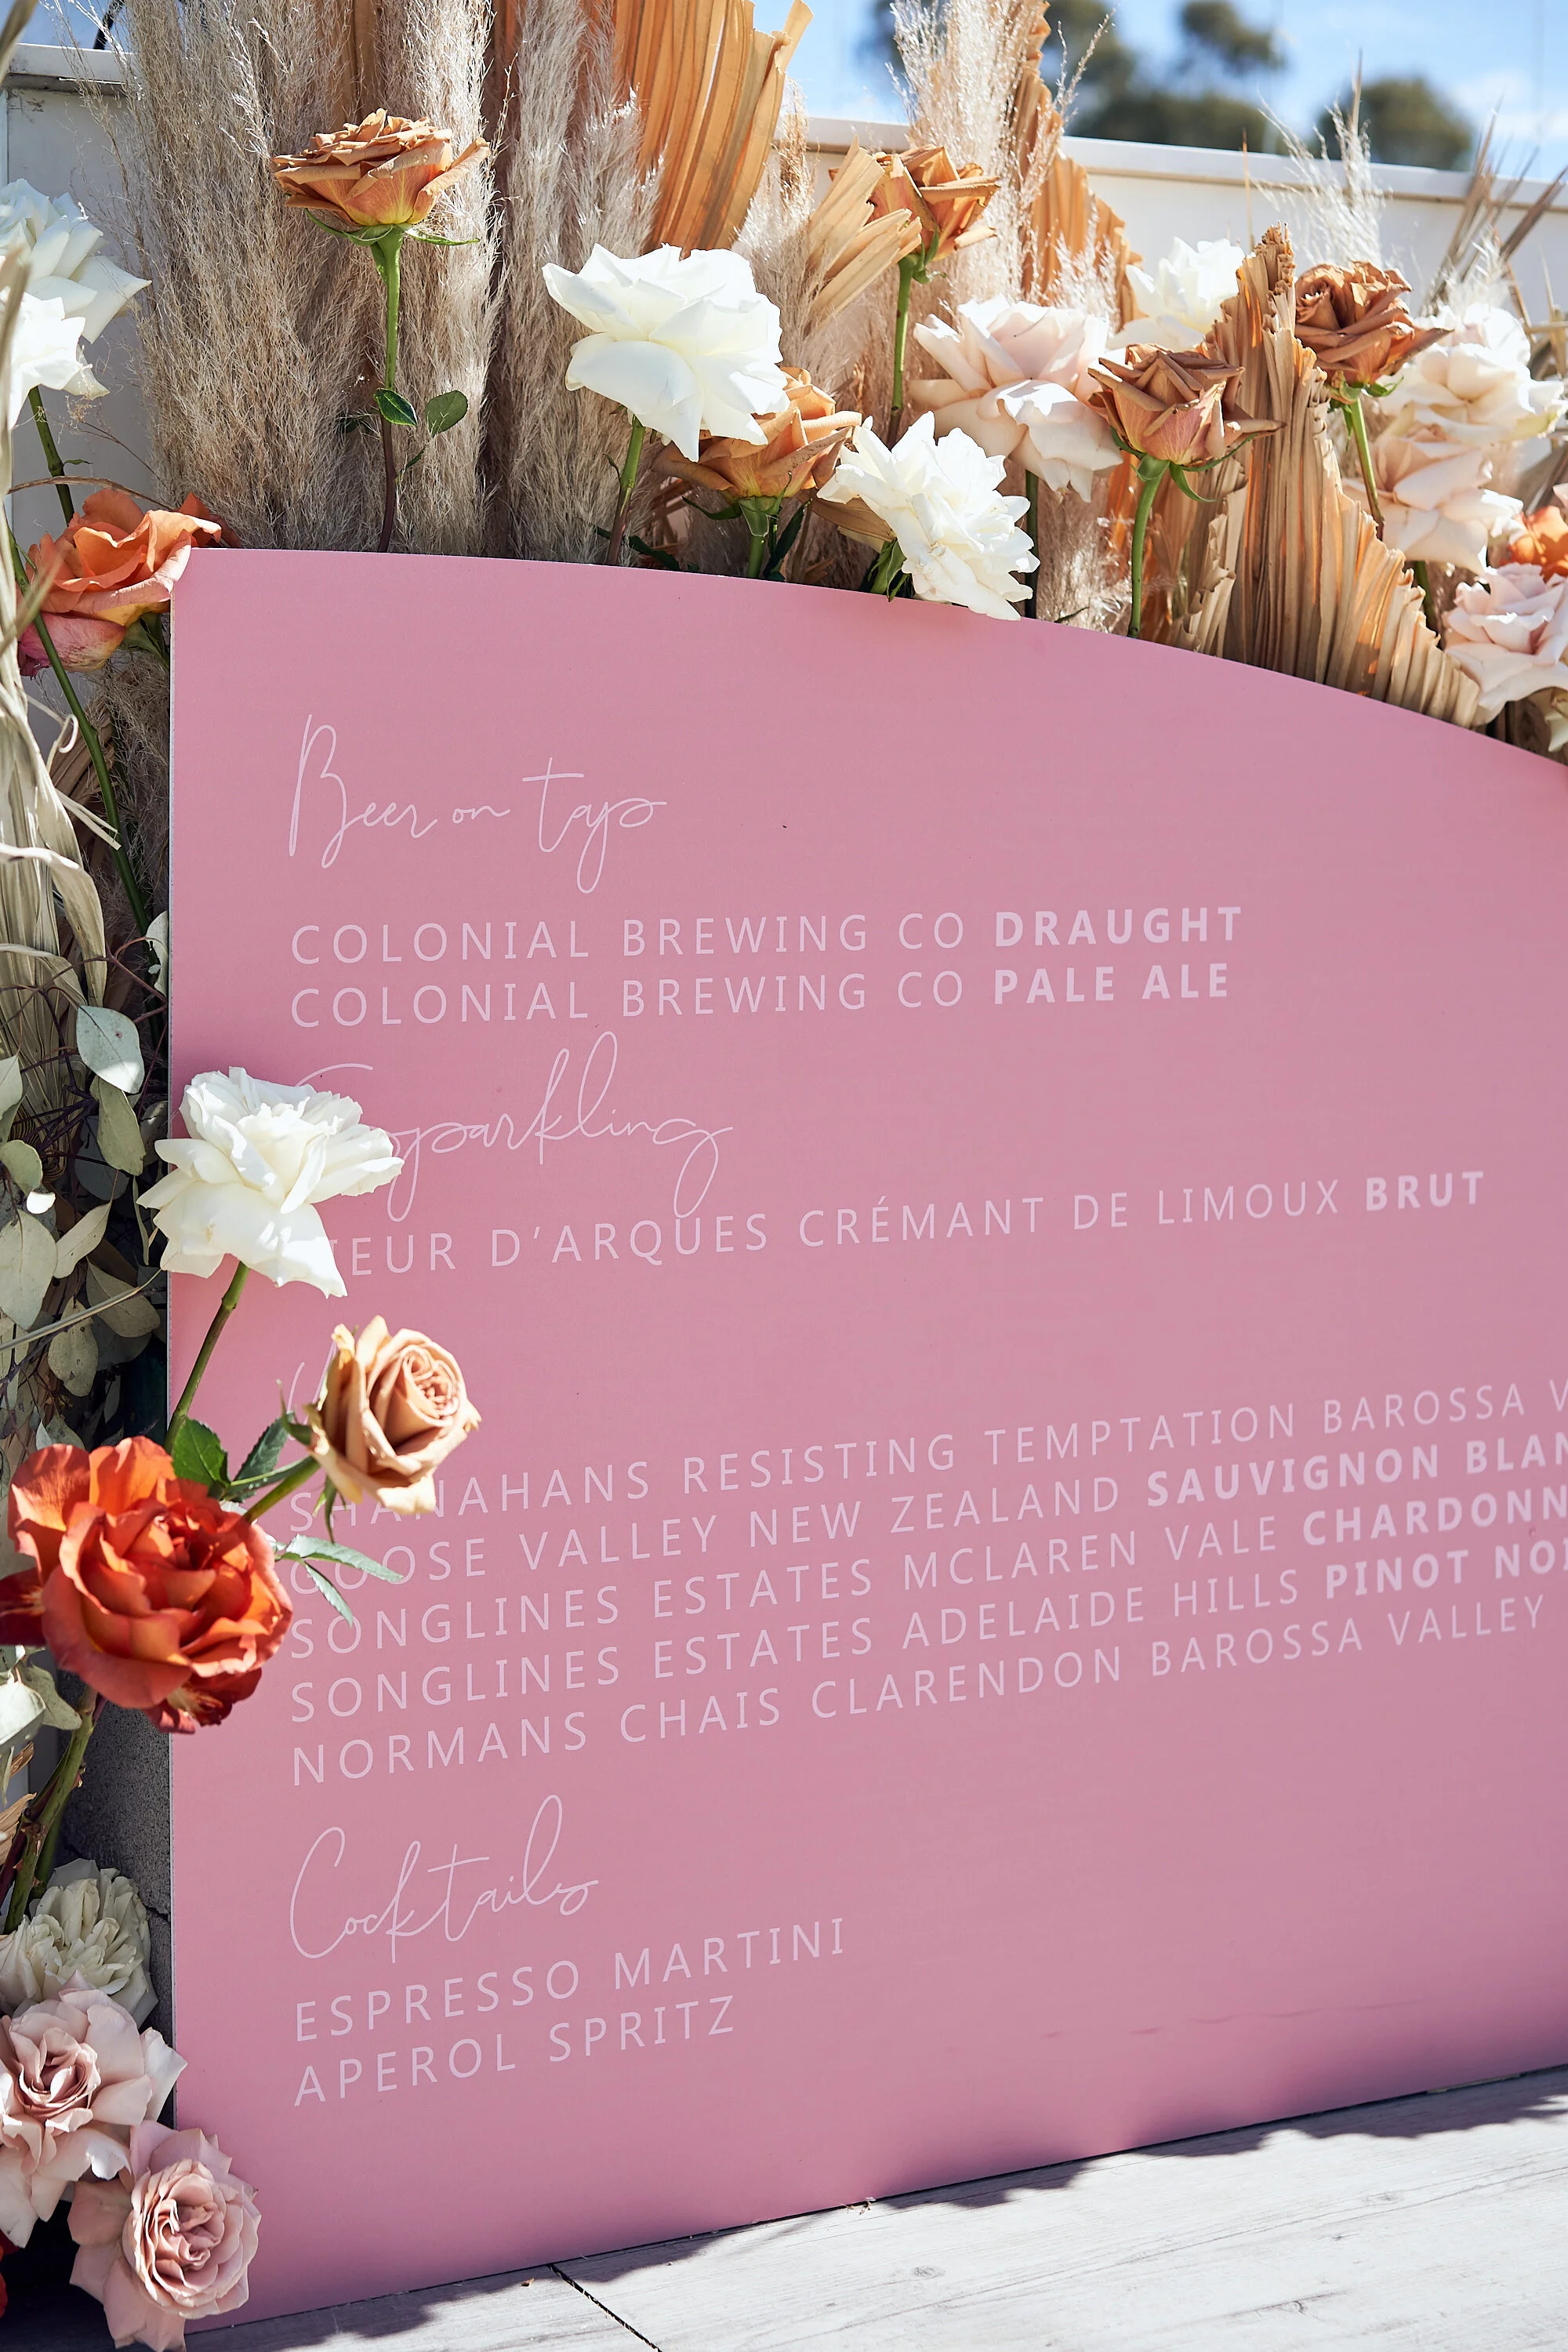 Beer on tap
COLONIAL BREWING CO DRAUGHT
COLONIAL BREWING CO PALE ALE
Sparkling
D'ARQUES CRÉMANT DE LIMOUX BRUT
SHANAHANS RESISTING TEMPTATION BAROSSA
GOOSE VALLEY NEW ZEALAND SAUVIGNON
SONGLINES ESTATES MCLAREN VALE
SONGLINES ESTATES ADELAIDE HILLS PINOT
NORMANS CHAIS CLARENDON BAROSSA VALLEY
Cocktails
ESPRESSO MARTINI
APEROL SPRITZ